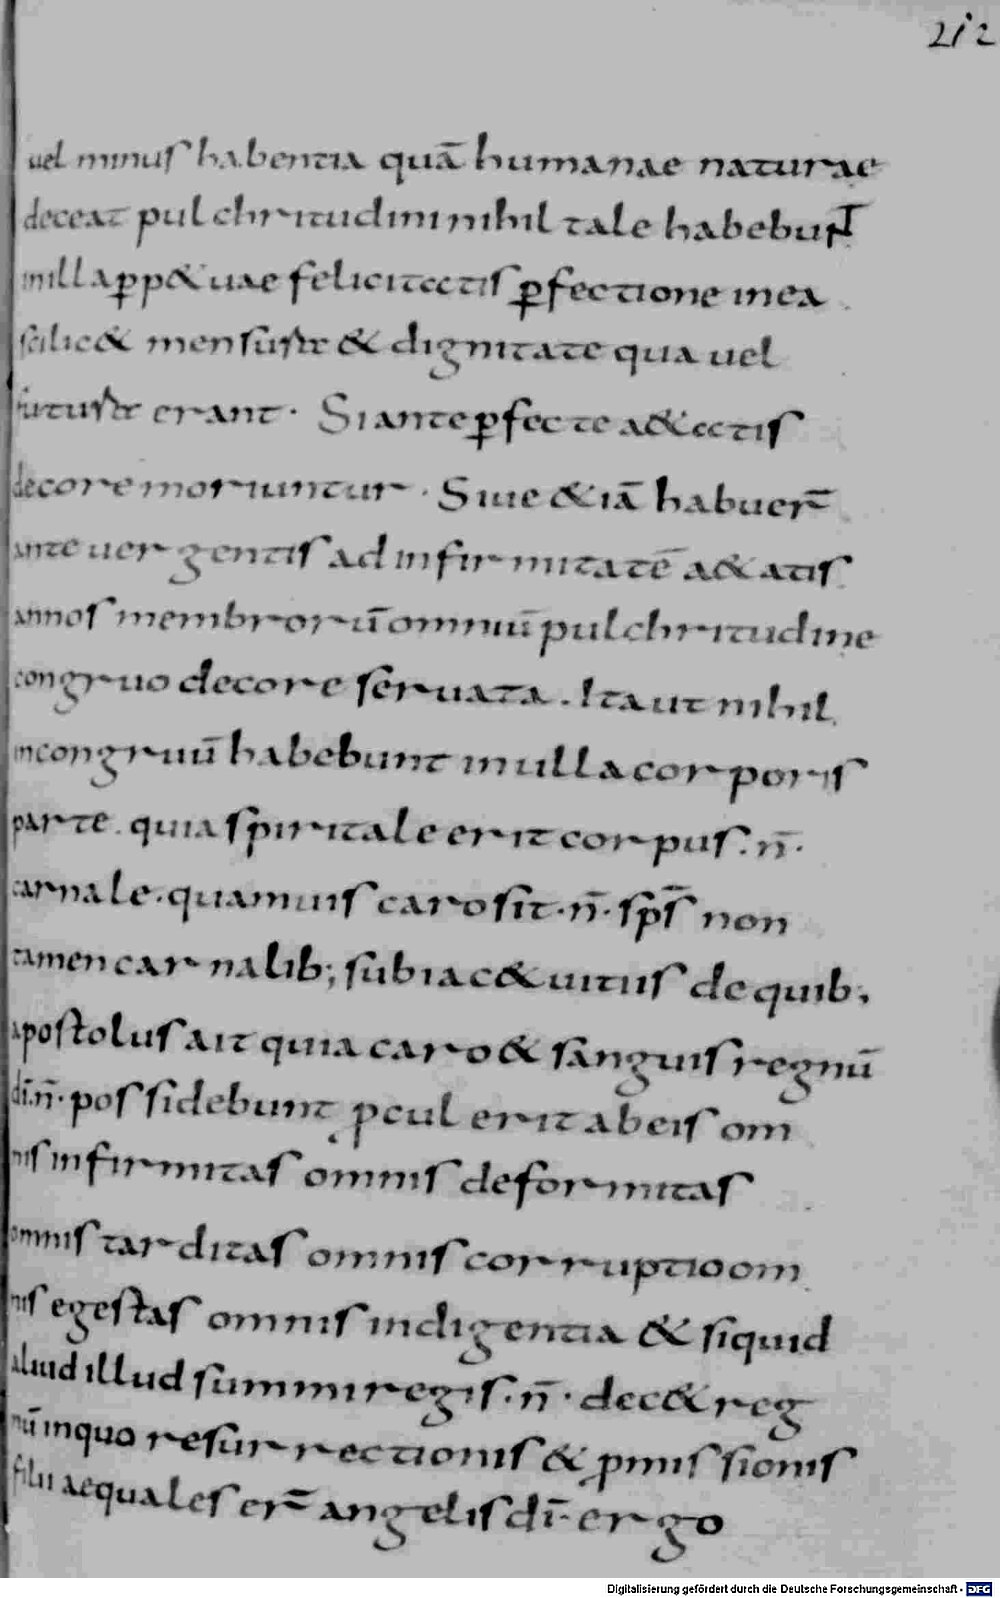 212
uel minus habentia quā humanae naturae
deceat pulchritudini nihil tale habebunt
in illa ꝑp&uae felicitatis ꝑfectione in ea
scilic& mensura & dignitate qua uel
futura erant · Si ante ꝑfecte a&atis
decore moriuntur · Siue &iā habuer̄
ante uergentis ad infirmitatē a&atis
annos membrorū omniū pulchritudine
congruo decore seruata . Ita ut nihil
incongruū habebunt in ulla corporis
parte . quia spiritale erit corpus . n̄ ·
carnale . quamuis caro sit · n̄ · sp̄s non
tamen carnalib; subiac& uitiis de quib;
apostolus ait quia caro & sanguis regnū
dī · n̄ · possidebunt ꝓcul erit ab eis om
nis infirmitas omnis deformitas
omnis tarditas omnis corruptio om
nis egestas omnis indigentia & siquid
aliud illud summi regis · n̄ · dec& reg
nū in quo resurrectionis & ꝓmissionis
filii aequales er̄ angelis dī · ergo
Digitalisierung gefördert durch die Deutsche Forschungsgemeinschaft - DFG